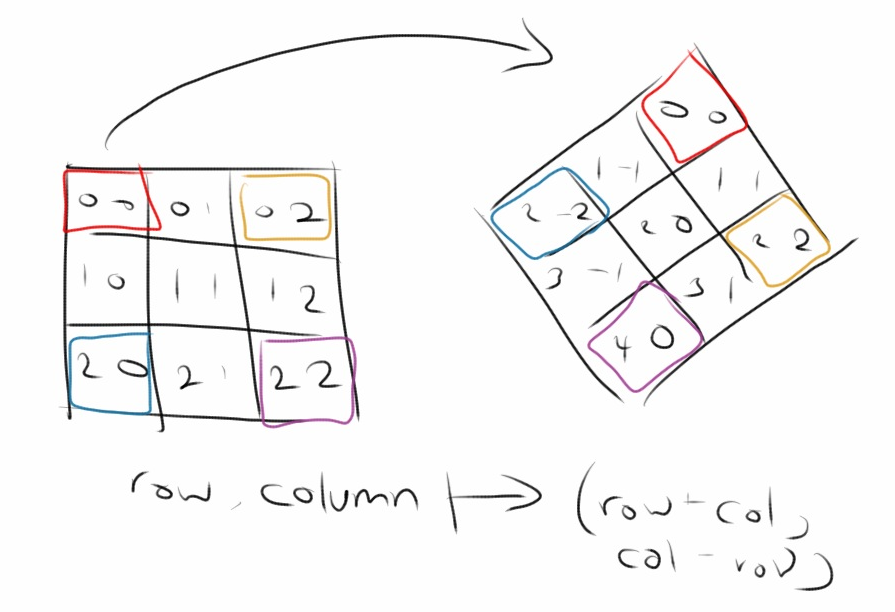 0 0 0 1 0 2
1 0 1 1 1 2
2 0 2 1 2 2
0 0
1 -1 1 1
2 -2 2 0 2 2
3 -1 3 1
4 0
row, column ↦ (row + col,
col - row)